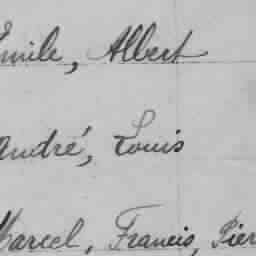 Émile, Albert
André, Louis
Marcel, Francis, Pier